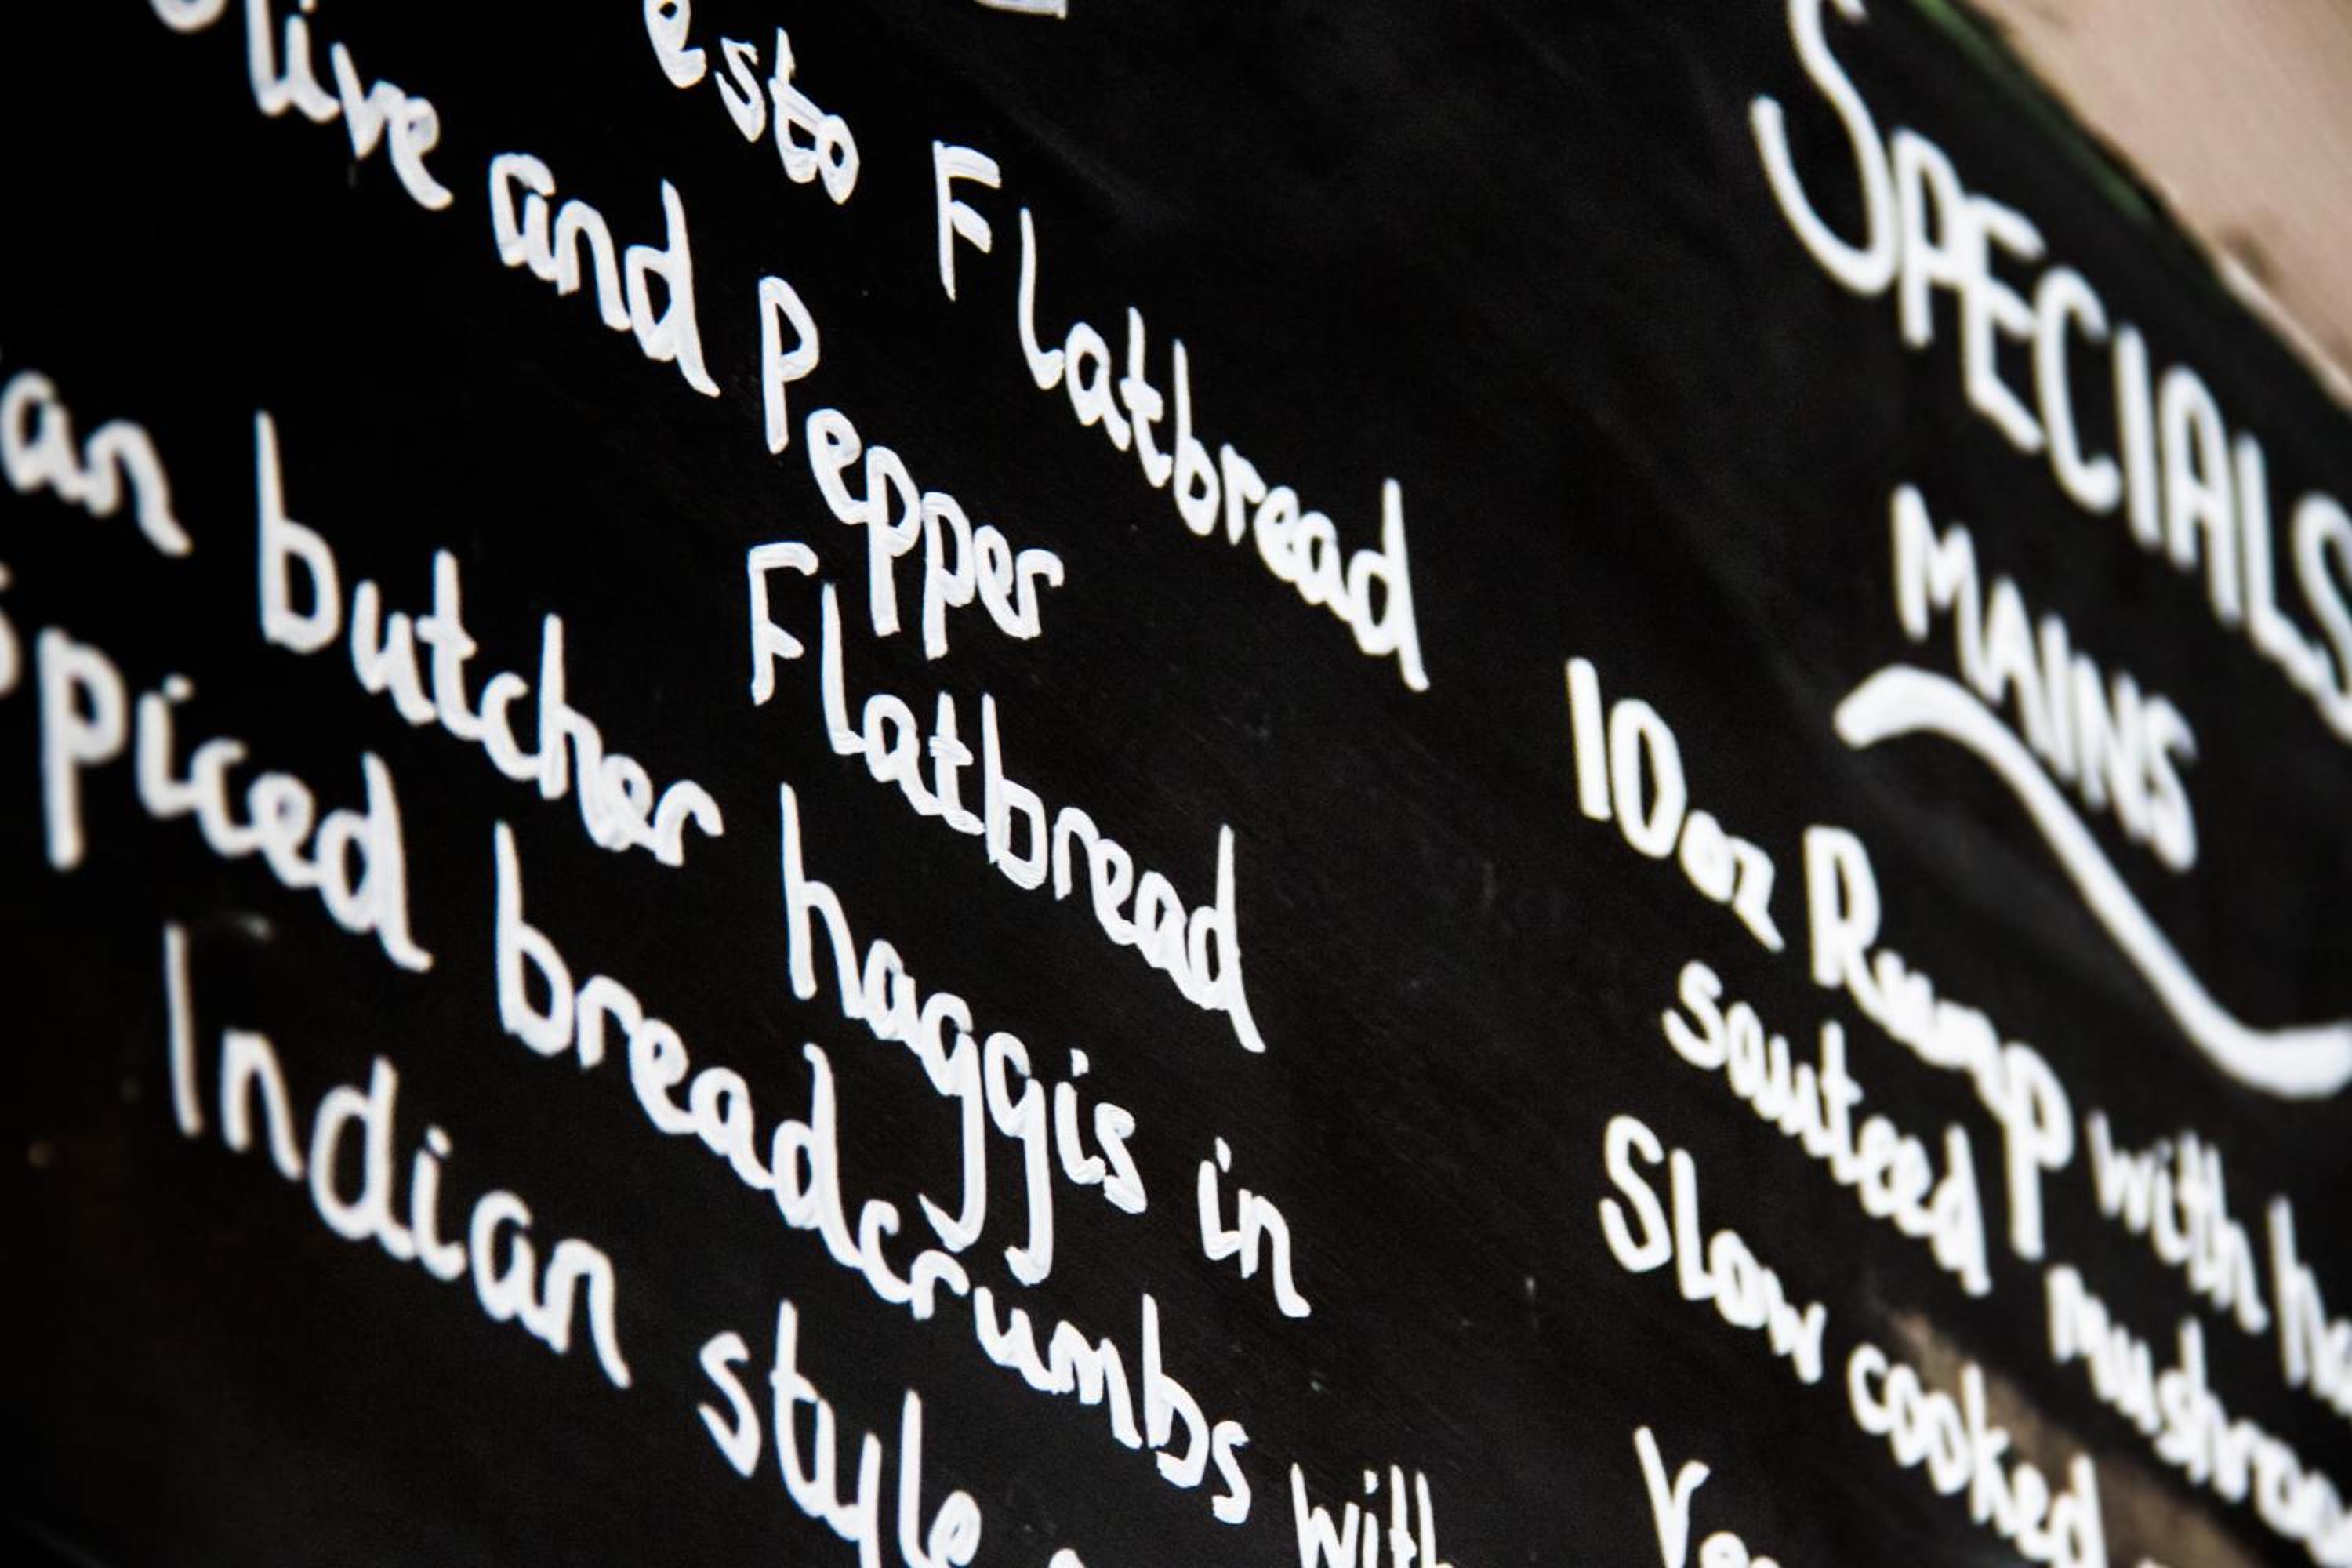 esto Flatbread
olive and Pepper
Flatbread
an butcher haggis in
spiced breadcrumbs with
Indian style
SPECIALS
MAINS
10oz Rump with ha
sauteed mushroo
Slow cooked